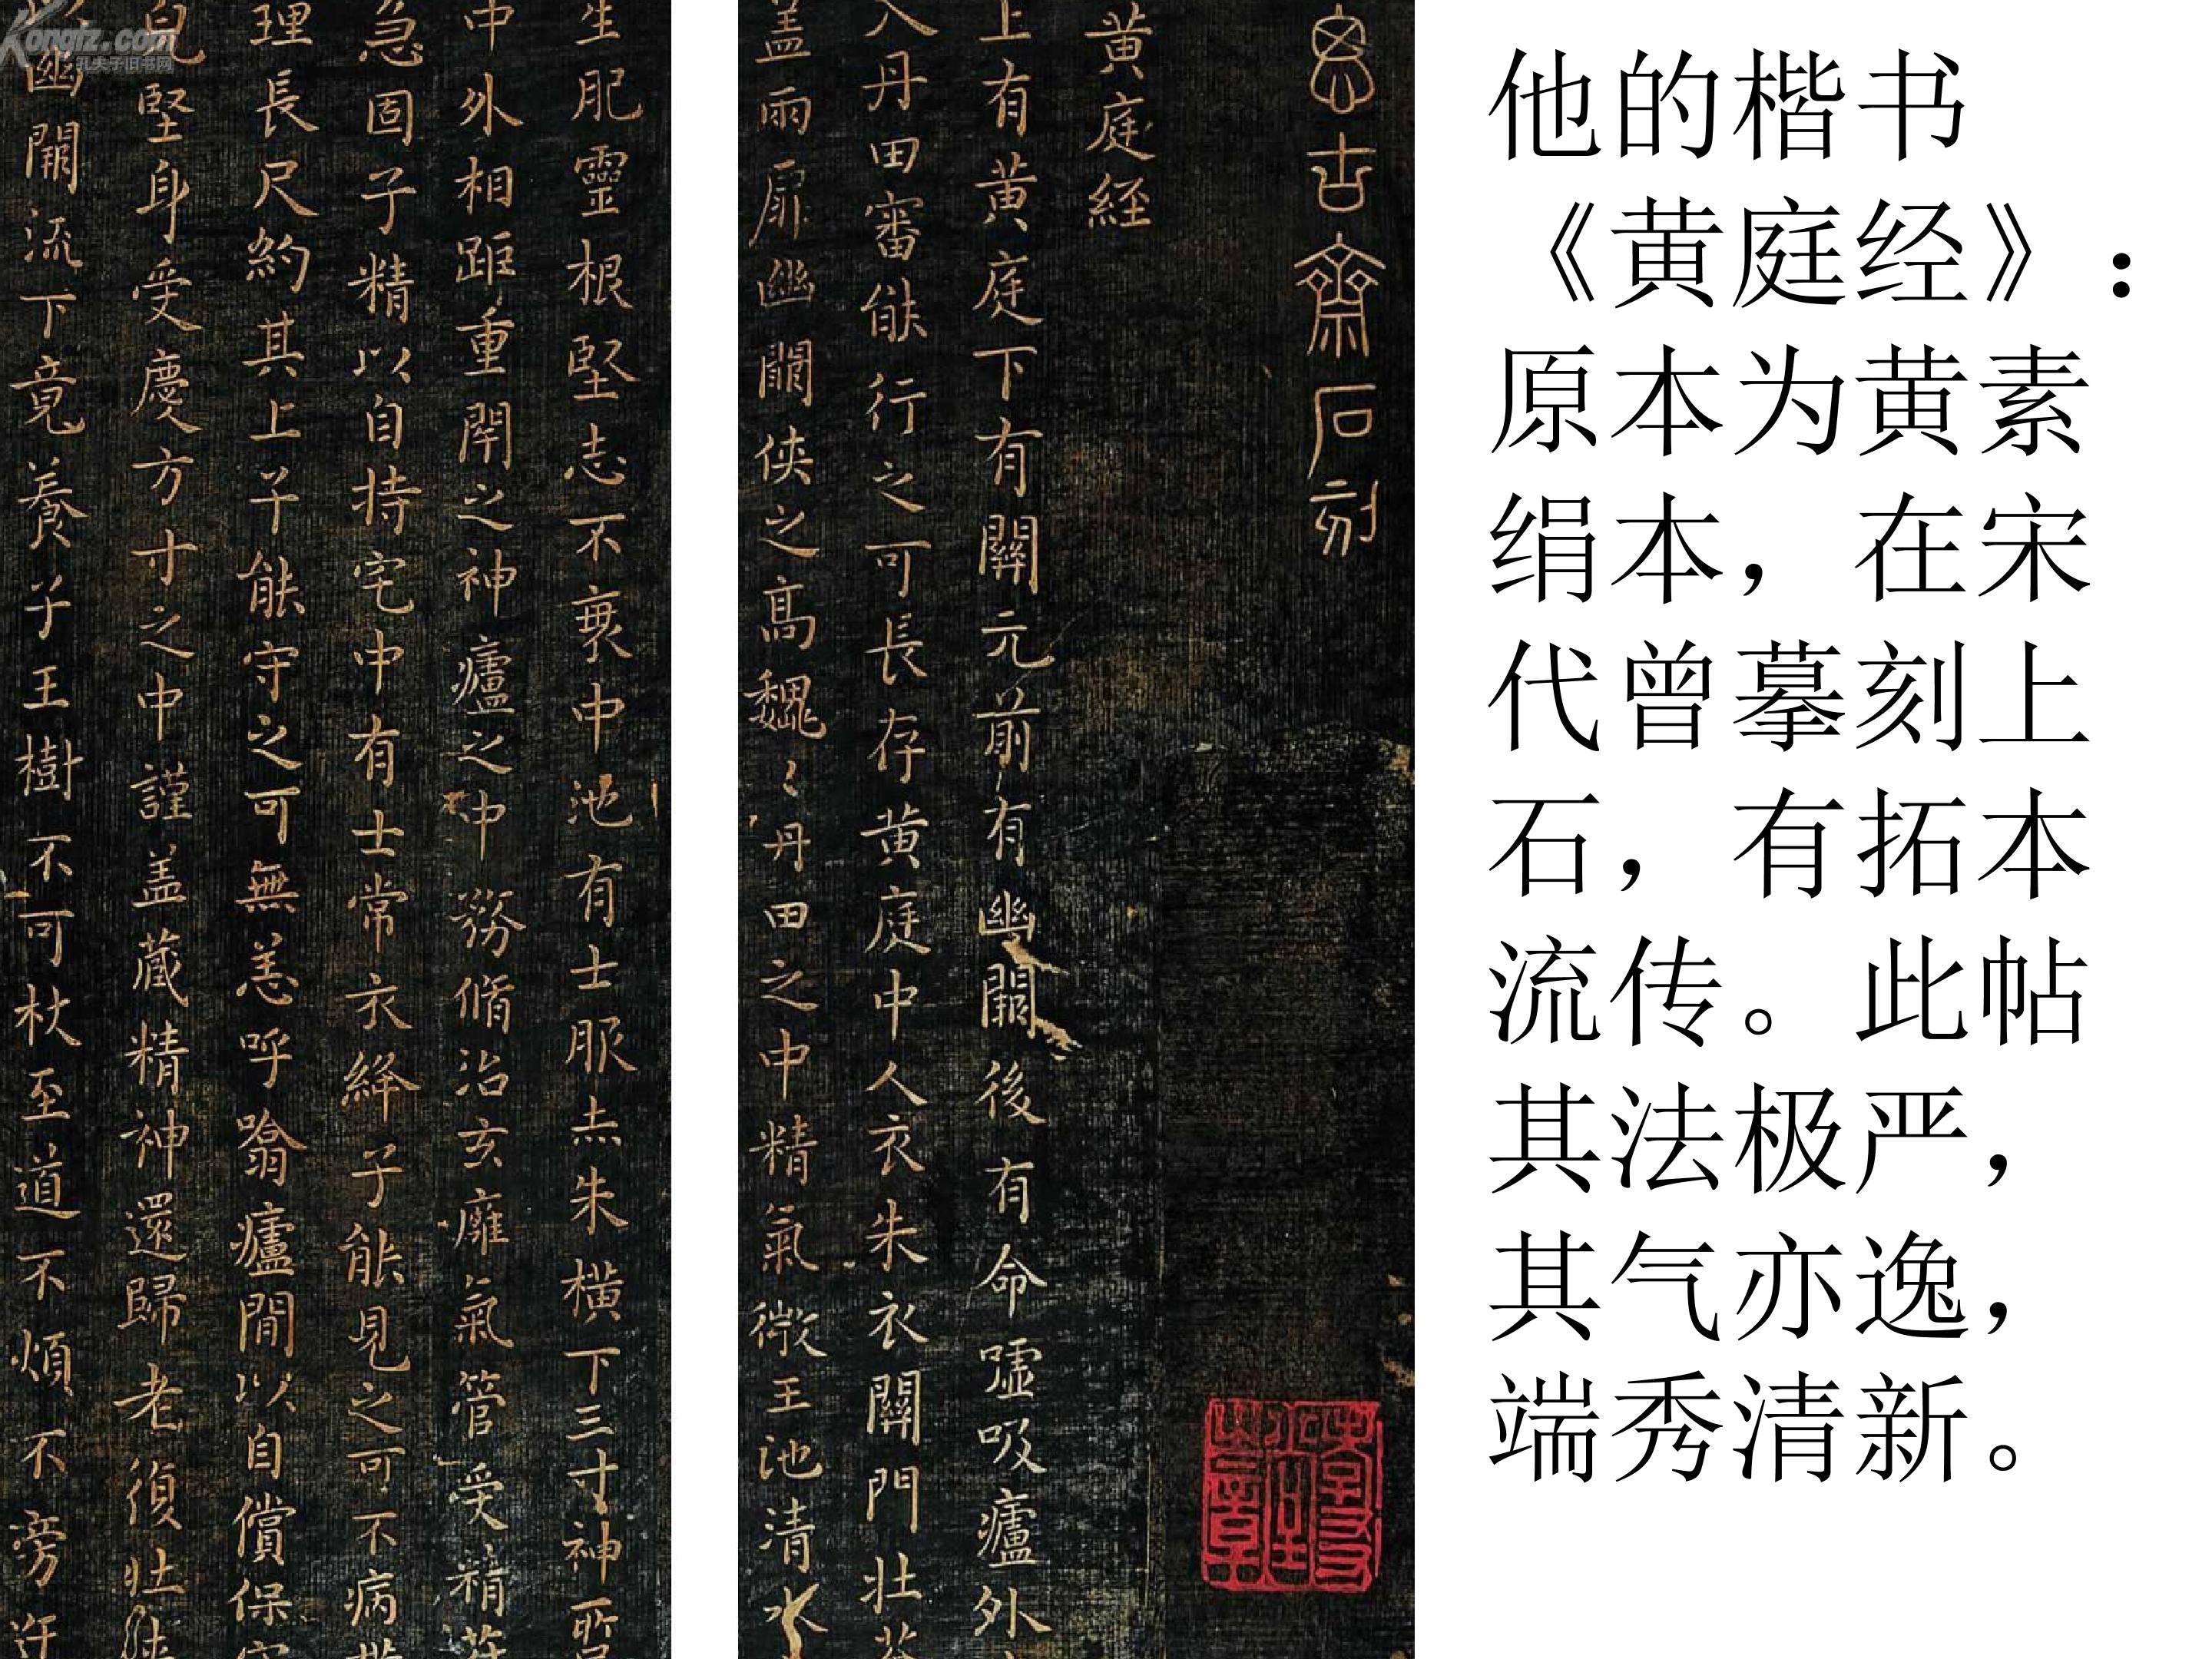 他的楷书
《黄庭经》：
原本为黄素
绢本，在宋
代曾摹刻上
石，有拓本
流传。此帖
其法极严，
其气亦逸，
端秀清新。
思古齋石刻
黄庭経
上有黄庭下有關元前有幽闕後有命嘘吸廬外
入丹田審能行之可長存黄庭中人衣朱衣關門壯
盖兩扉幽闕俠之髙魏〻丹田之中精氣微玉池清水
生肥靈根堅志不衰中池有士服赤朱橫下三寸神
中外相距重閉之神廬之中務脩治玄廱氣管受精
急固子精以自持宅中有士常衣絳子能見之可不病
理長尺約其上子能守之可無恙呼噏廬間以自償保
堅身受慶方寸之中謹盖藏精神還歸老復壯俠
幽闕流下竟養子玉樹不可杖至道不煩不旁迕
Kongfz.com
孔夫子旧书网